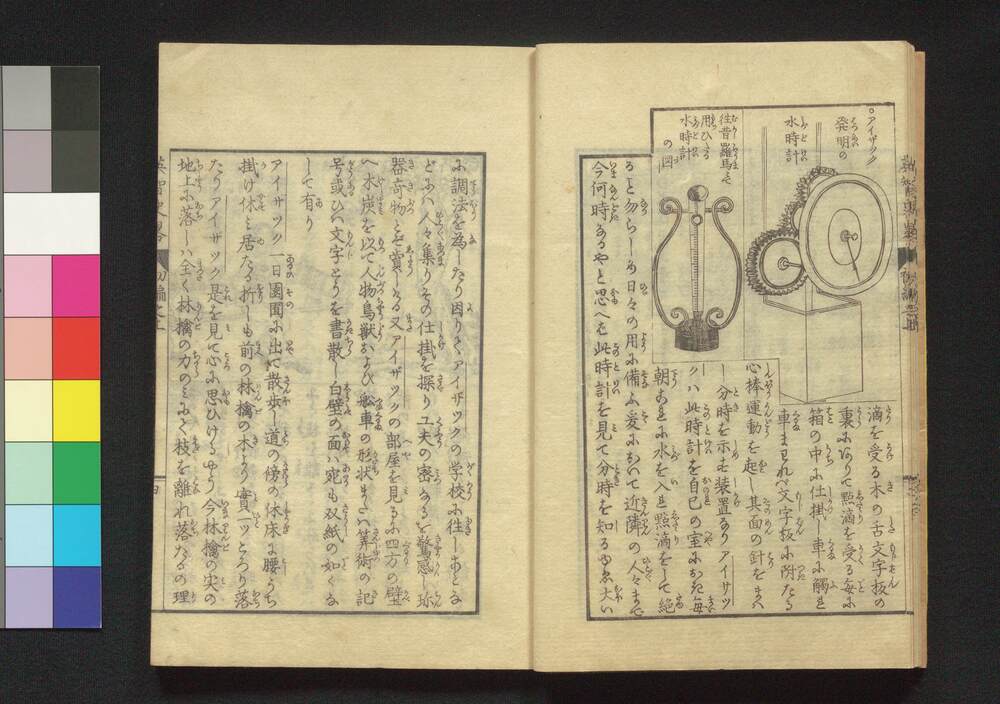 アイザック
発明の
水時計
往昔羅馬に
用ひたる
水時計
の図
滴を受る木の舌文字板の
裏にありて點滴を受る毎に
箱の中に仕掛し車に觸れ
車まわれバ文字板に附たる
心棒運動を起し其面の針をまハ
し分時を示す装置なりアイザツ
クハ此時計を自己の室におき毎
朝おきれに水を入れ點滴をして絶
ると勿らしめ日々の用に備ふ爰において近隣の人々まで
今何時なるやと思へバ此時計を見て分時を知るゆゑ大い
に調法を為したり因りてアイザツクの学校に往しあとな
どにハ人々集りその仕掛を探り工夫の密なるを驚感し珎
器奇物とぞ賞しける又アイザツクの部屋を見るに四方の壁
へ木炭を以て人物鳥獣および舩車の形状またハ算術の記
号或ひハ文字とうを書散し白壁の面ハ宛も双紙の如くな
して有り
アイザツク一日園囿に出て散歩し道の傍の休床に腰うち
掛け休ミ居たる折しも前の林檎の木より實一ツとろり落
たりアイザック是を見て心に思ひけるやう今林檎の実の
地上に落しハ全く林檎の力のミにて枝を離れ落たるの理